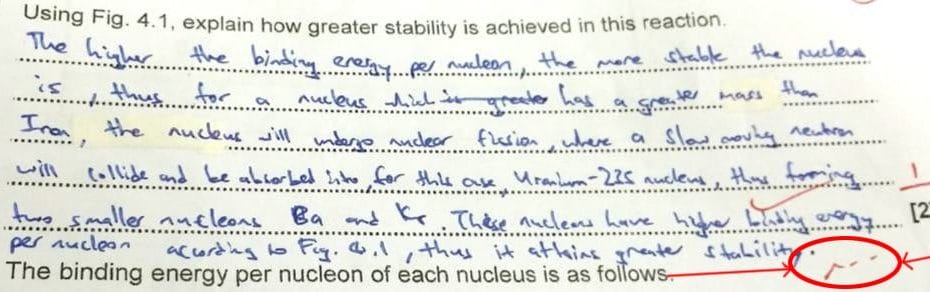 Using Fig. 4.1, explain how greater stability is achieved in this reaction.
The higher the binding energy per nucleon, the more stable the nucleus
is, thus for a nucleus which is greater has a greater mass than
Iron, the nucleus will undergo nuclear fission, where a slow moving neutron
will collide and be absorbed into, for this case, Uranium-235 nucleus, thus forming
1
two smaller nucleons Ba and Kr. These nucleons have higher binding energy
[2
per nucleon according to Fig. 4.1, thus it attains greater stability.
The binding energy per nucleon of each nucleus is as follows.